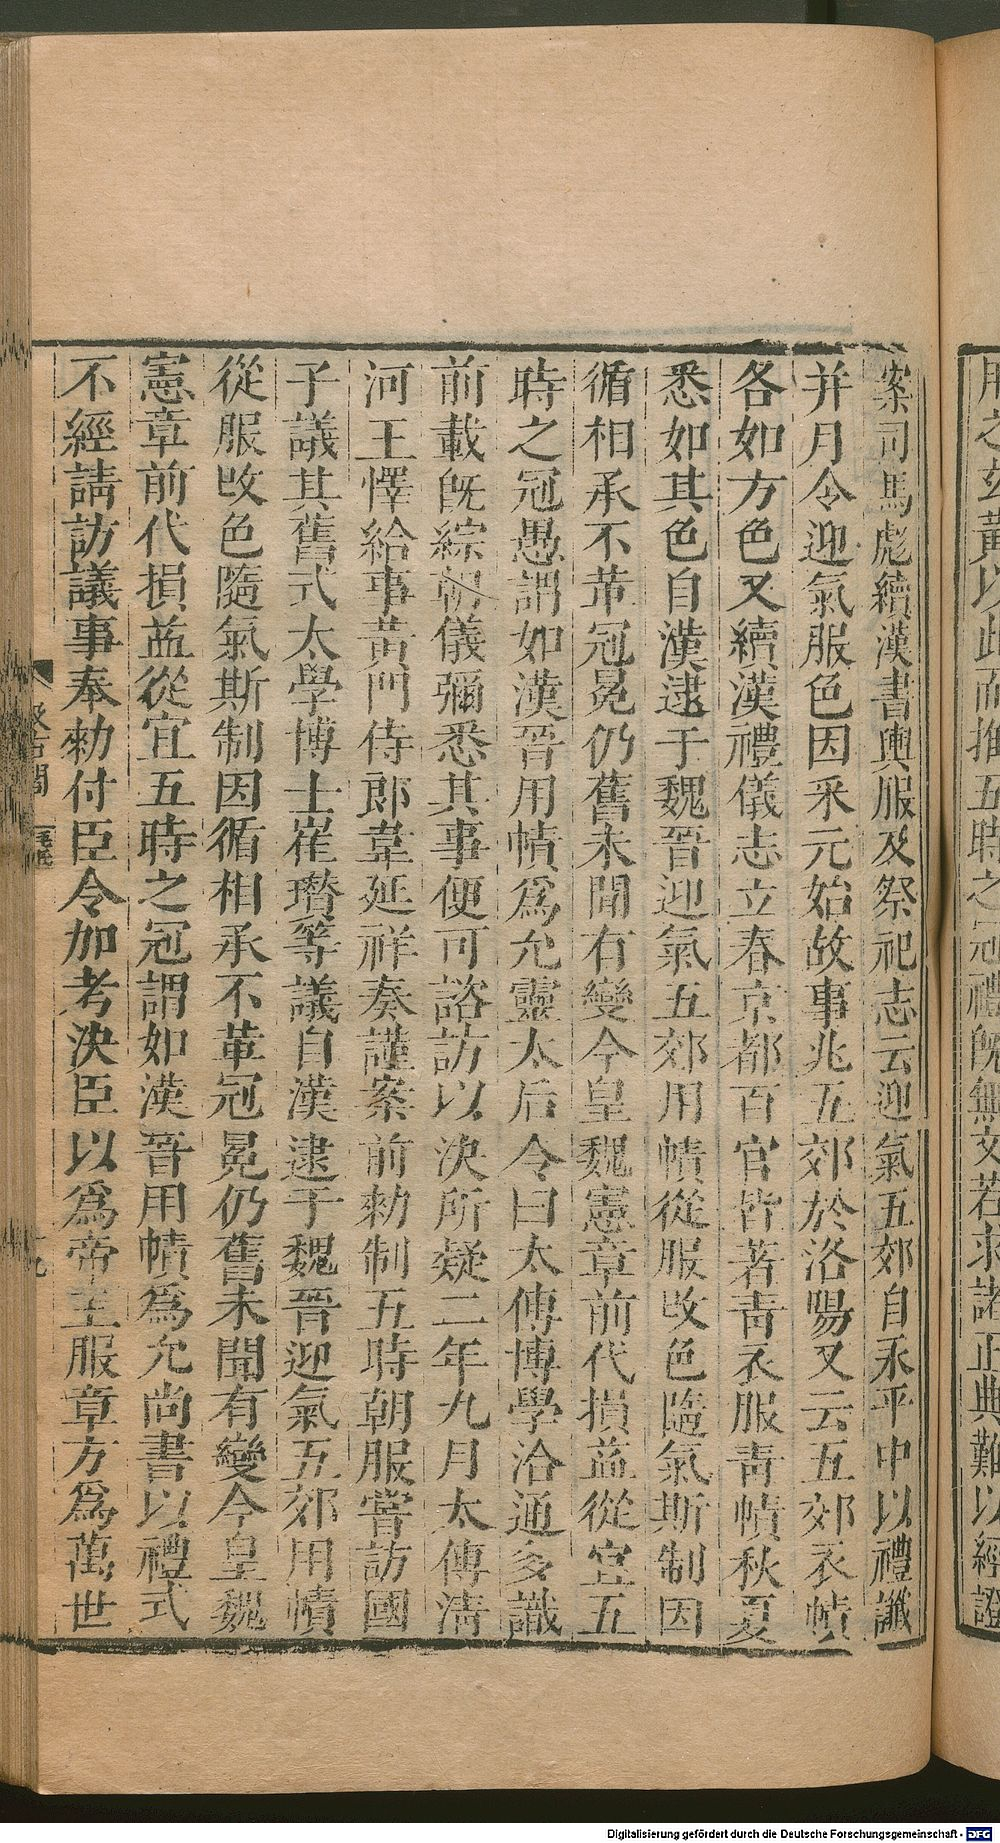 用之玆黃以此而推五時之冠禮旣無文若求諸正典難以經證
案司馬彪續漢書輿服及祭祀志云迎氣五郊自永平中以禮讖
并月令迎氣服色因采元始故事兆五郊於洛陽又云五郊衣幘
各如方色又續漢禮儀志立春京都百官皆著靑衣服靑幘秋夏
悉如其色自漢逮于魏晉迎氣五郊用幘從服改色隨氣斯制因
循相承不革冠冕仍舊未聞有變今皇魏憲章前代損益從宜五
時之冠愚謂如漢晉用幘爲允靈太后令曰太傅博學洽通多識
前載旣綜朝儀彌悉其事便可諮訪以決所疑二年九月太傅淸
河王懌給事黃門侍郎韋延祥奏謹案前勑制五時朝服嘗訪國
子議其舊式太學博士崔瓚等議自漢逮于魏晉迎氣五郊用幘
從服改色隨氣斯制因循相承不革冠冕仍舊未聞有變今皇魏
憲章前代損益從宜五時之冠謂如漢晉用幘爲允尚書以禮式
不經請訪議事奉勑付臣令加考決臣以爲帝王服章方爲萬世
汲古閣
毛氏
Digitalisierung gefördert durch die Deutsche Forschungsgemeinschaft - DFG